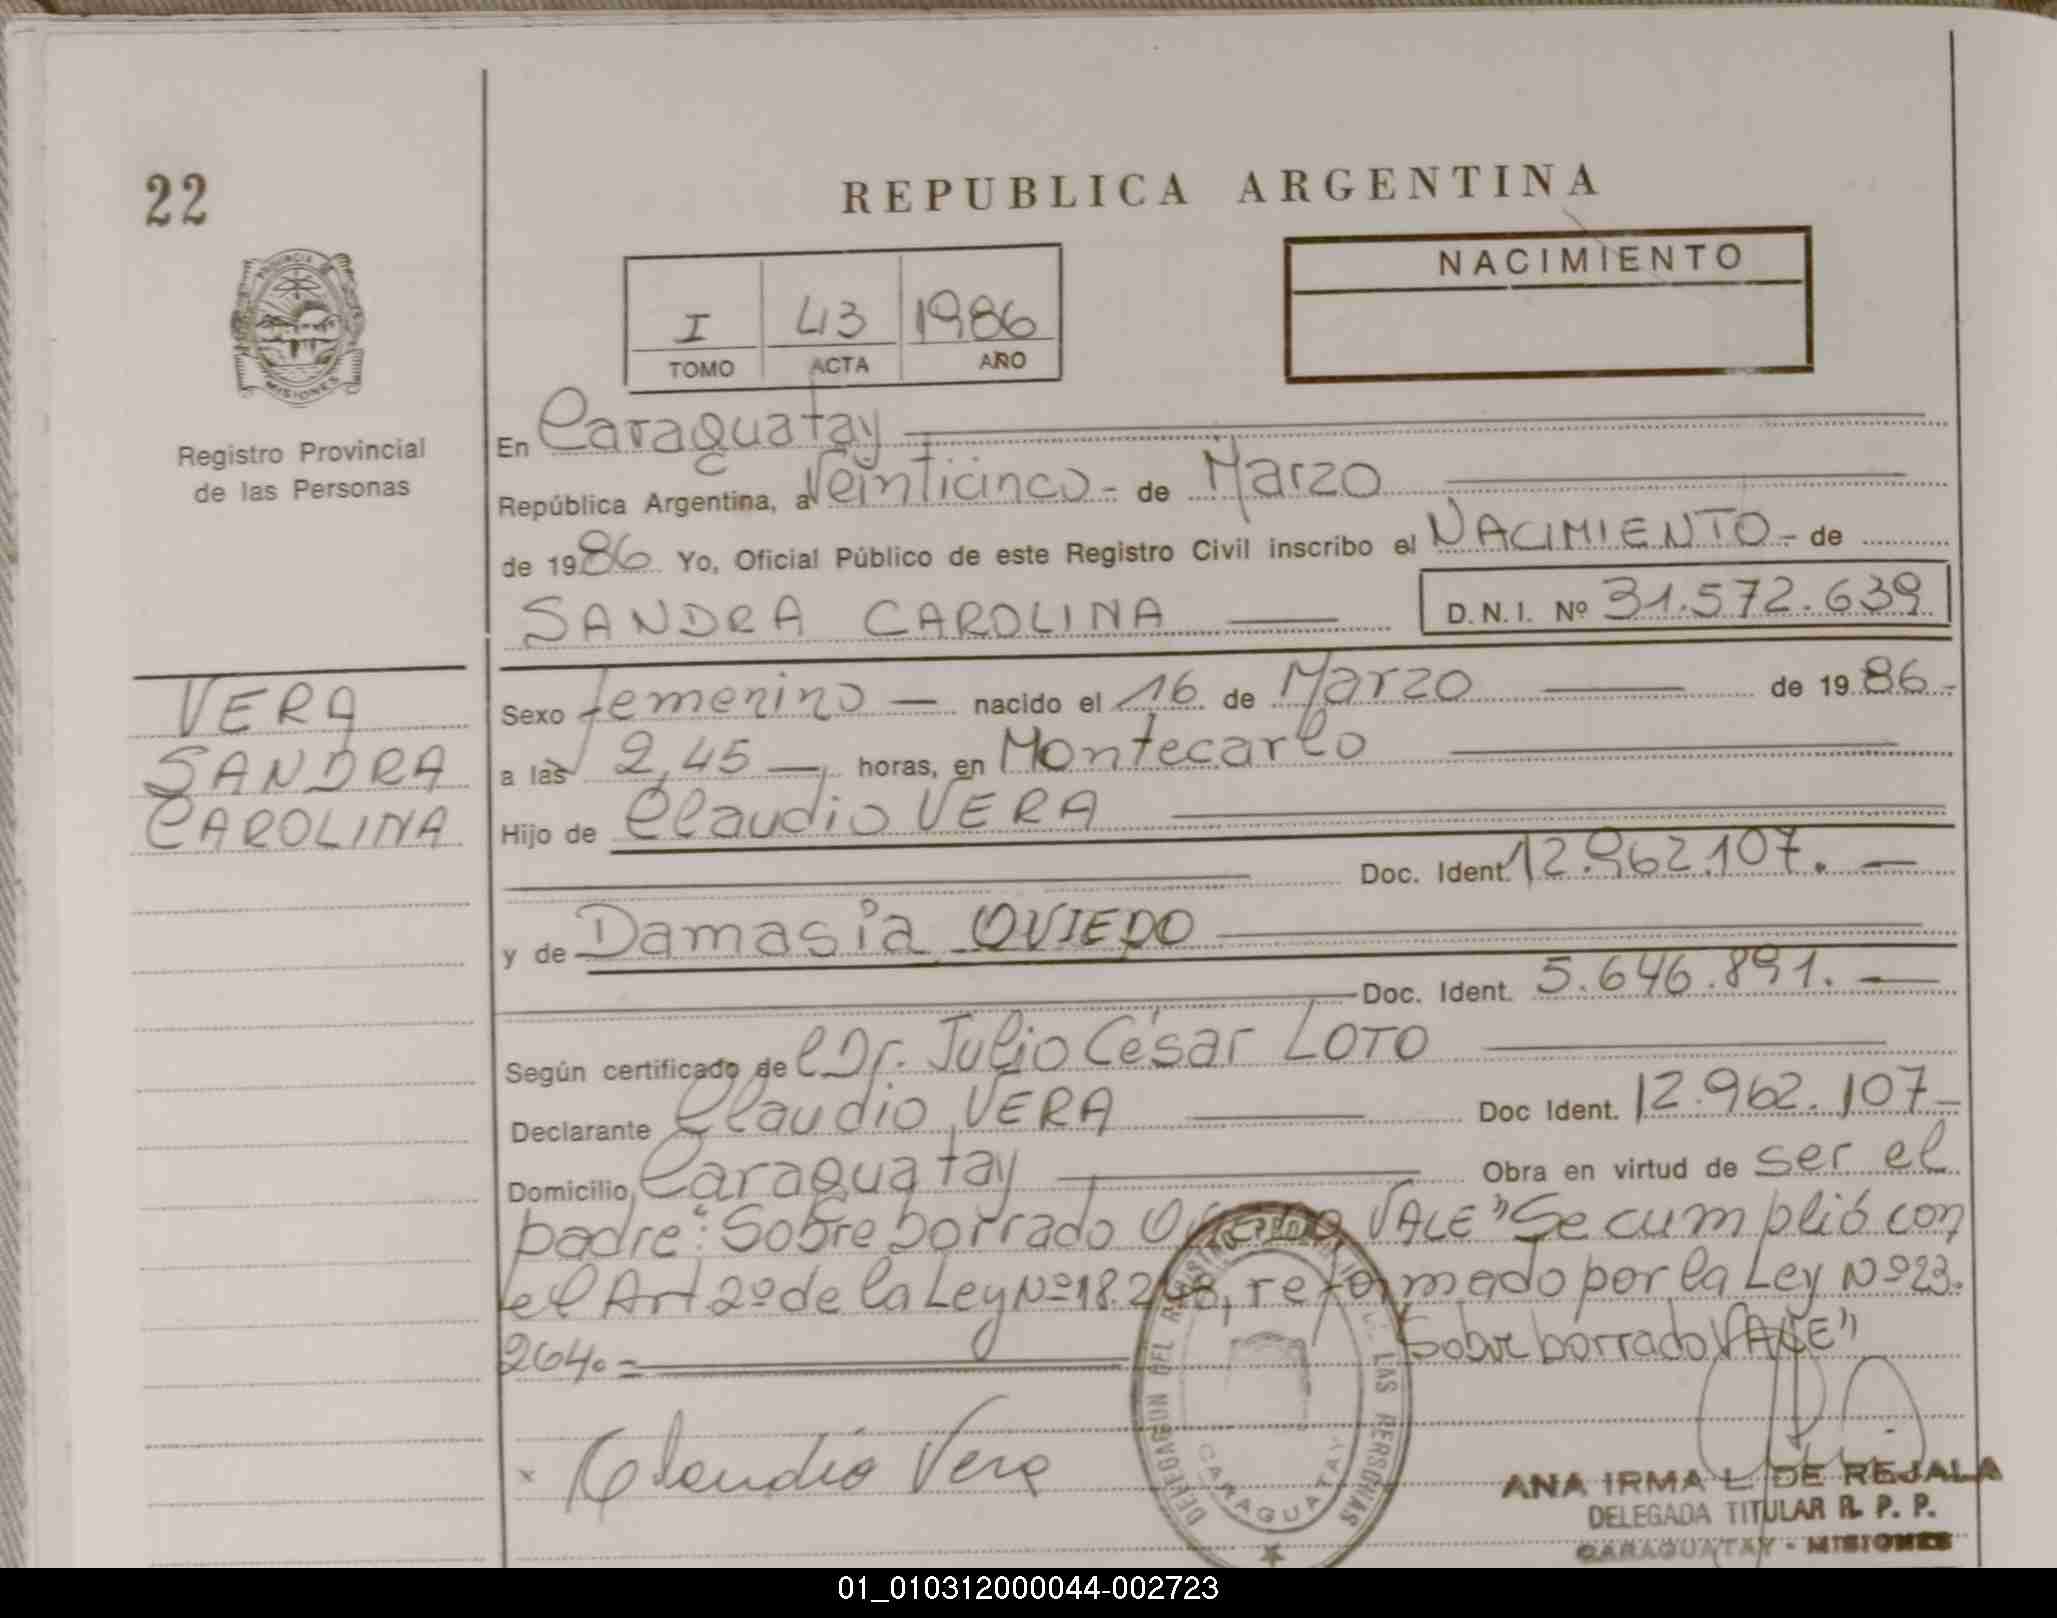 22
REPUBLICA ARGENTINA
PROVINCIA DE
MISIONES
Registro Provincial
de las Personas
I 43 1986
TOMO ACTA AÑO
NACIMIENTO
En Caraguatay
República Argentina, a Veinticinco - de Marzo
de 1986 Yo, Oficial Público de este Registro Civil inscribo el NACIMIENTO - de
SANDRA CAROLINA D.N.I. Nº 31.572.639
VERA
SANDRA
CAROLINA
Sexo femenino — nacido el 16 de Marzo — de 1986 -
a las 2,45 — horas, en Montecarlo
Hijo de Claudio VERA
Doc. Ident. 12.962.107. —
y de Damasia OVIEDO
Doc. Ident. 5.646.891. —
Según certificado del Dr. Julio César LOTO
Declarante Claudio VERA — Doc Ident. 12.962.107 -
Domicilio Caraguatay — Obra en virtud de ser el
padre: "Sobre borrado OVIEDO VALE" Se cumplió con
el Art 2º de la Ley Nº 18.248, reformado por la Ley Nº 23.
264. = "Sobre borrado VALE"
x Claudio Vera
DELEGACION DEL REGISTRO PROVINCIAL DE LAS PERSONAS
CARAGUATAY
ANA IRMA L. DE REJALA
DELEGADA TITULAR R. P. P.
CARAGUATAY - MISIONES
01_010312000044-002723